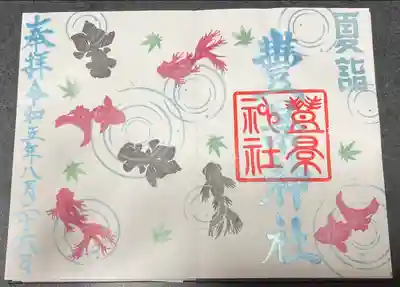 夏詣
豐景神社
豐景
神社
奉拝 令和五年八月二十六日